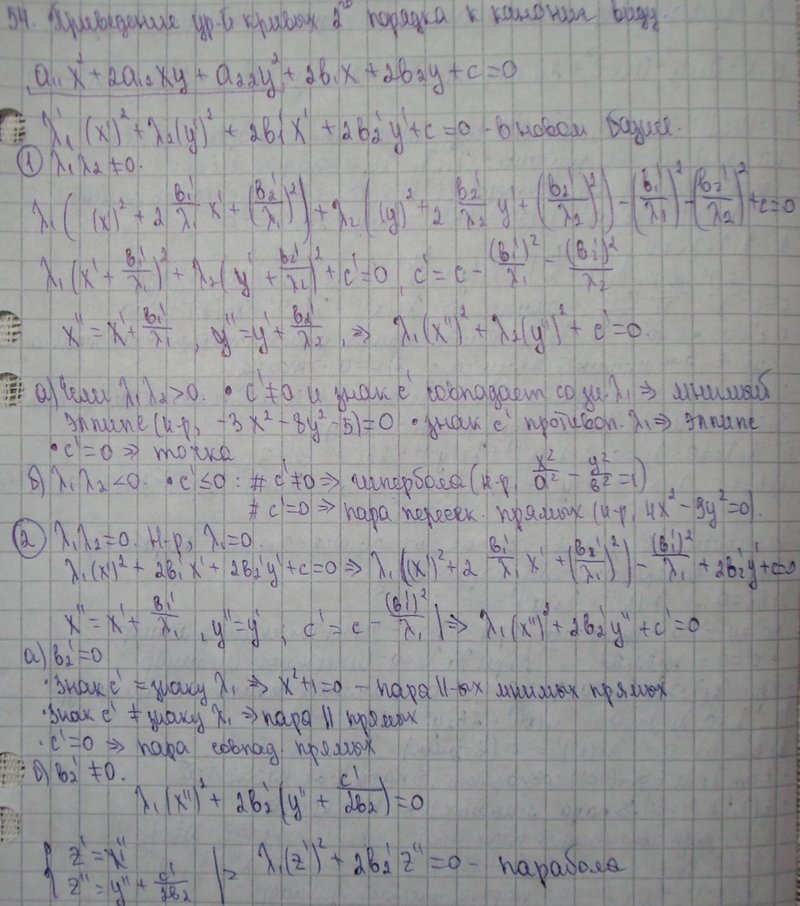 54. Приведение ур-й кривых 2го порядка к канонич. виду.
a₁₁x² + 2a₁₂xy + a₂₂y² + 2в₁x + 2в₂y + c = 0
λ₁(x')² + λ₂(y')² + 2в₁'x' + 2в₂'y' + c = 0 - в новом базисе.
① λ₁λ₂ ≠ 0.
λ₁((x')² + 2 в₁'/λ₁ x' + (в₂'/λ₁)²) + λ₂((y')² + 2 в₂'/λ₂ y' + (в₂'/λ₂)²) - (в₁'/λ₁)² - (в₂'/λ₂)² + c = 0
λ₁(x' + в₁'/λ₁)² + λ₂(y' + в₂'/λ₂)² + c' = 0, c' = c - (в₁')²/λ₁ - (в₂')²/λ₂
x'' = x' + в₁'/λ₁, y'' = y' + в₂'/λ₂, ⇒ λ₁(x'')² + λ₂(y'')² + c' = 0.
а) Если λ₁λ₂ > 0. • c' ≠ 0 и знак c' совпадает со зн. λ₁ ⇒ мнимый
эллипс (н-р, -3x² - 8y² - 5) = 0 • знак c' противоп. λ₁ ⇒ эллипс
• c' = 0 ⇒ точка
б) λ₁λ₂ < 0. • c' ≤ 0 : # c' ≠ 0 ⇒ гипербола (н-р, x²/a² - y²/в² = 1)
# c' = 0 ⇒ пара пересек. прямых (н-р, 4x² - 9y² = 0).
② λ₁λ₂ = 0. Н-р, λ₂ = 0.
λ₁(x')² + 2в₁'x' + 2в₂'y' + c = 0 ⇒ λ₁((x')² + 2 в₁'/λ₁ x' + (в₂'/λ₁)²) - (в₁')²/λ₁ + 2в₂'y' + c = 0
x'' = x' + в₁'/λ₁, y'' = y', c' = c - (в₁')²/λ₁ | ⇒ λ₁(x'')² + 2в₂'y'' + c' = 0
а) в₂' = 0
• Знак c' = знаку λ₁ ⇒ x² + 1 = 0 - пара ||-ых мнимых прямых
• Знак c' ≠ знаку λ₁ ⇒ пара || прямых
• c' = 0 ⇒ пара совпад. прямых
б) в₂' ≠ 0.
λ₁(x'')² + 2в₂'(y'' + c'/2в₂) = 0
{ z' = x''
z'' = y'' + c'/2в₂ | ⇒ λ₁(z')² + 2в₂'z'' = 0 - парабола